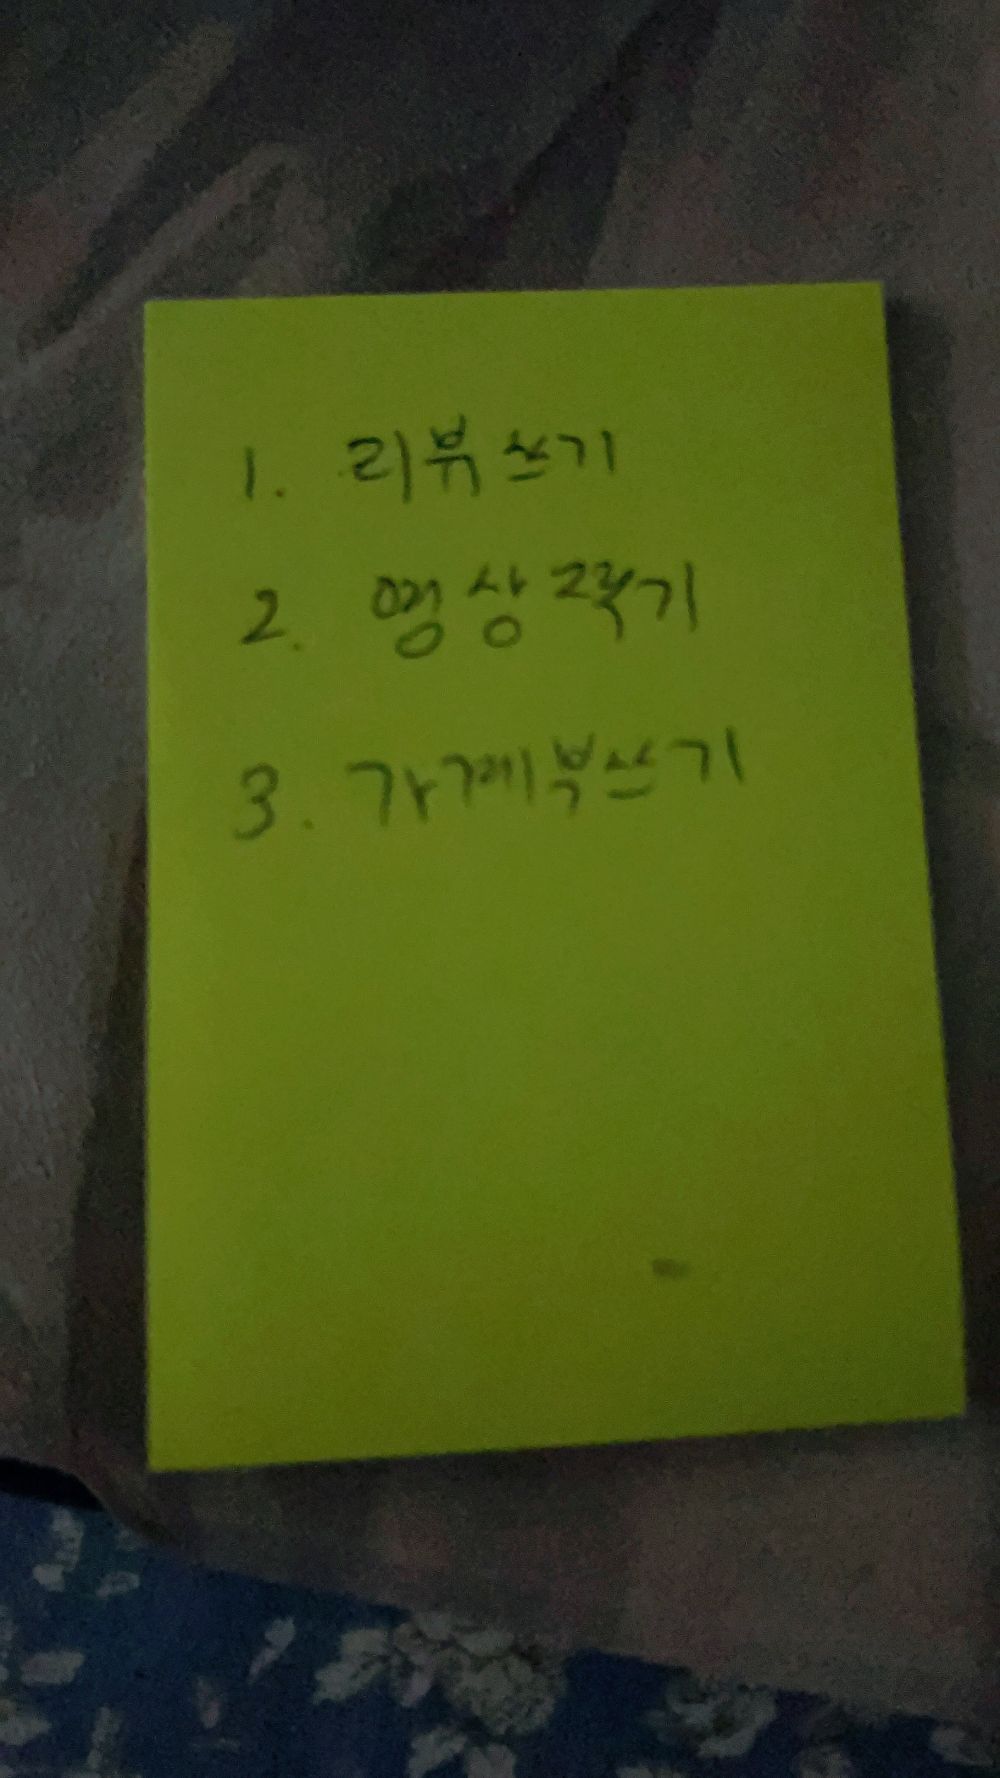 1. 리뷰쓰기
2. 영상찍기
3. 가계부쓰기